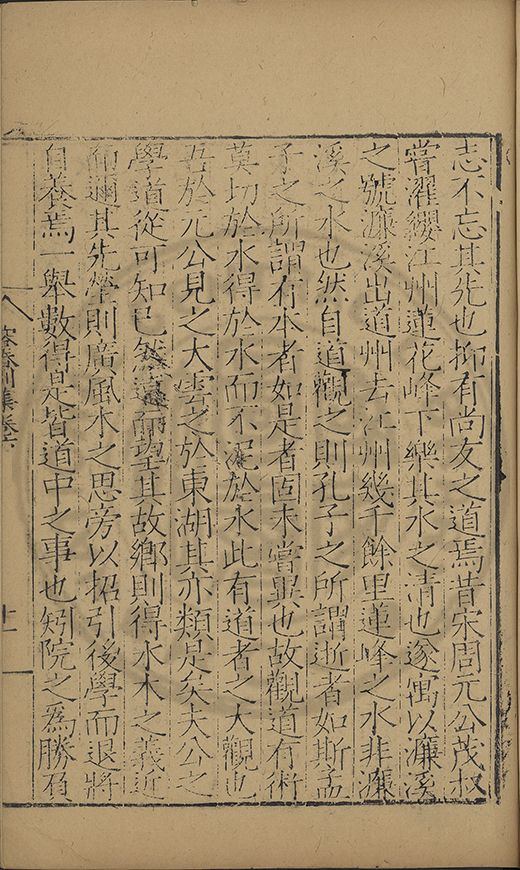 志不忘其先也抑有尚友之道焉昔宋周元公茂叔
嘗濯纓江州蓮花峰下樂其水之清也遂寓以濂溪
之號濂溪出道州去江州幾千餘里蓮峰之水非濂
溪之水也然自道觀之則孔子之所謂逝者如斯孟
子之所謂有本者如是者固未嘗異也故觀道有術
莫切於水得於水而不泥於水此有道者之大觀也
吾於元公見之大雲之於東湖其亦類是矣夫公之
學道從可知已然遠而望其故鄉則得水木之義近
而邇其先塋則廣風水之思旁以招引後學而退將
自養焉一舉數得是皆道中之事也矧院之為勝頁
容春別集卷六
十一